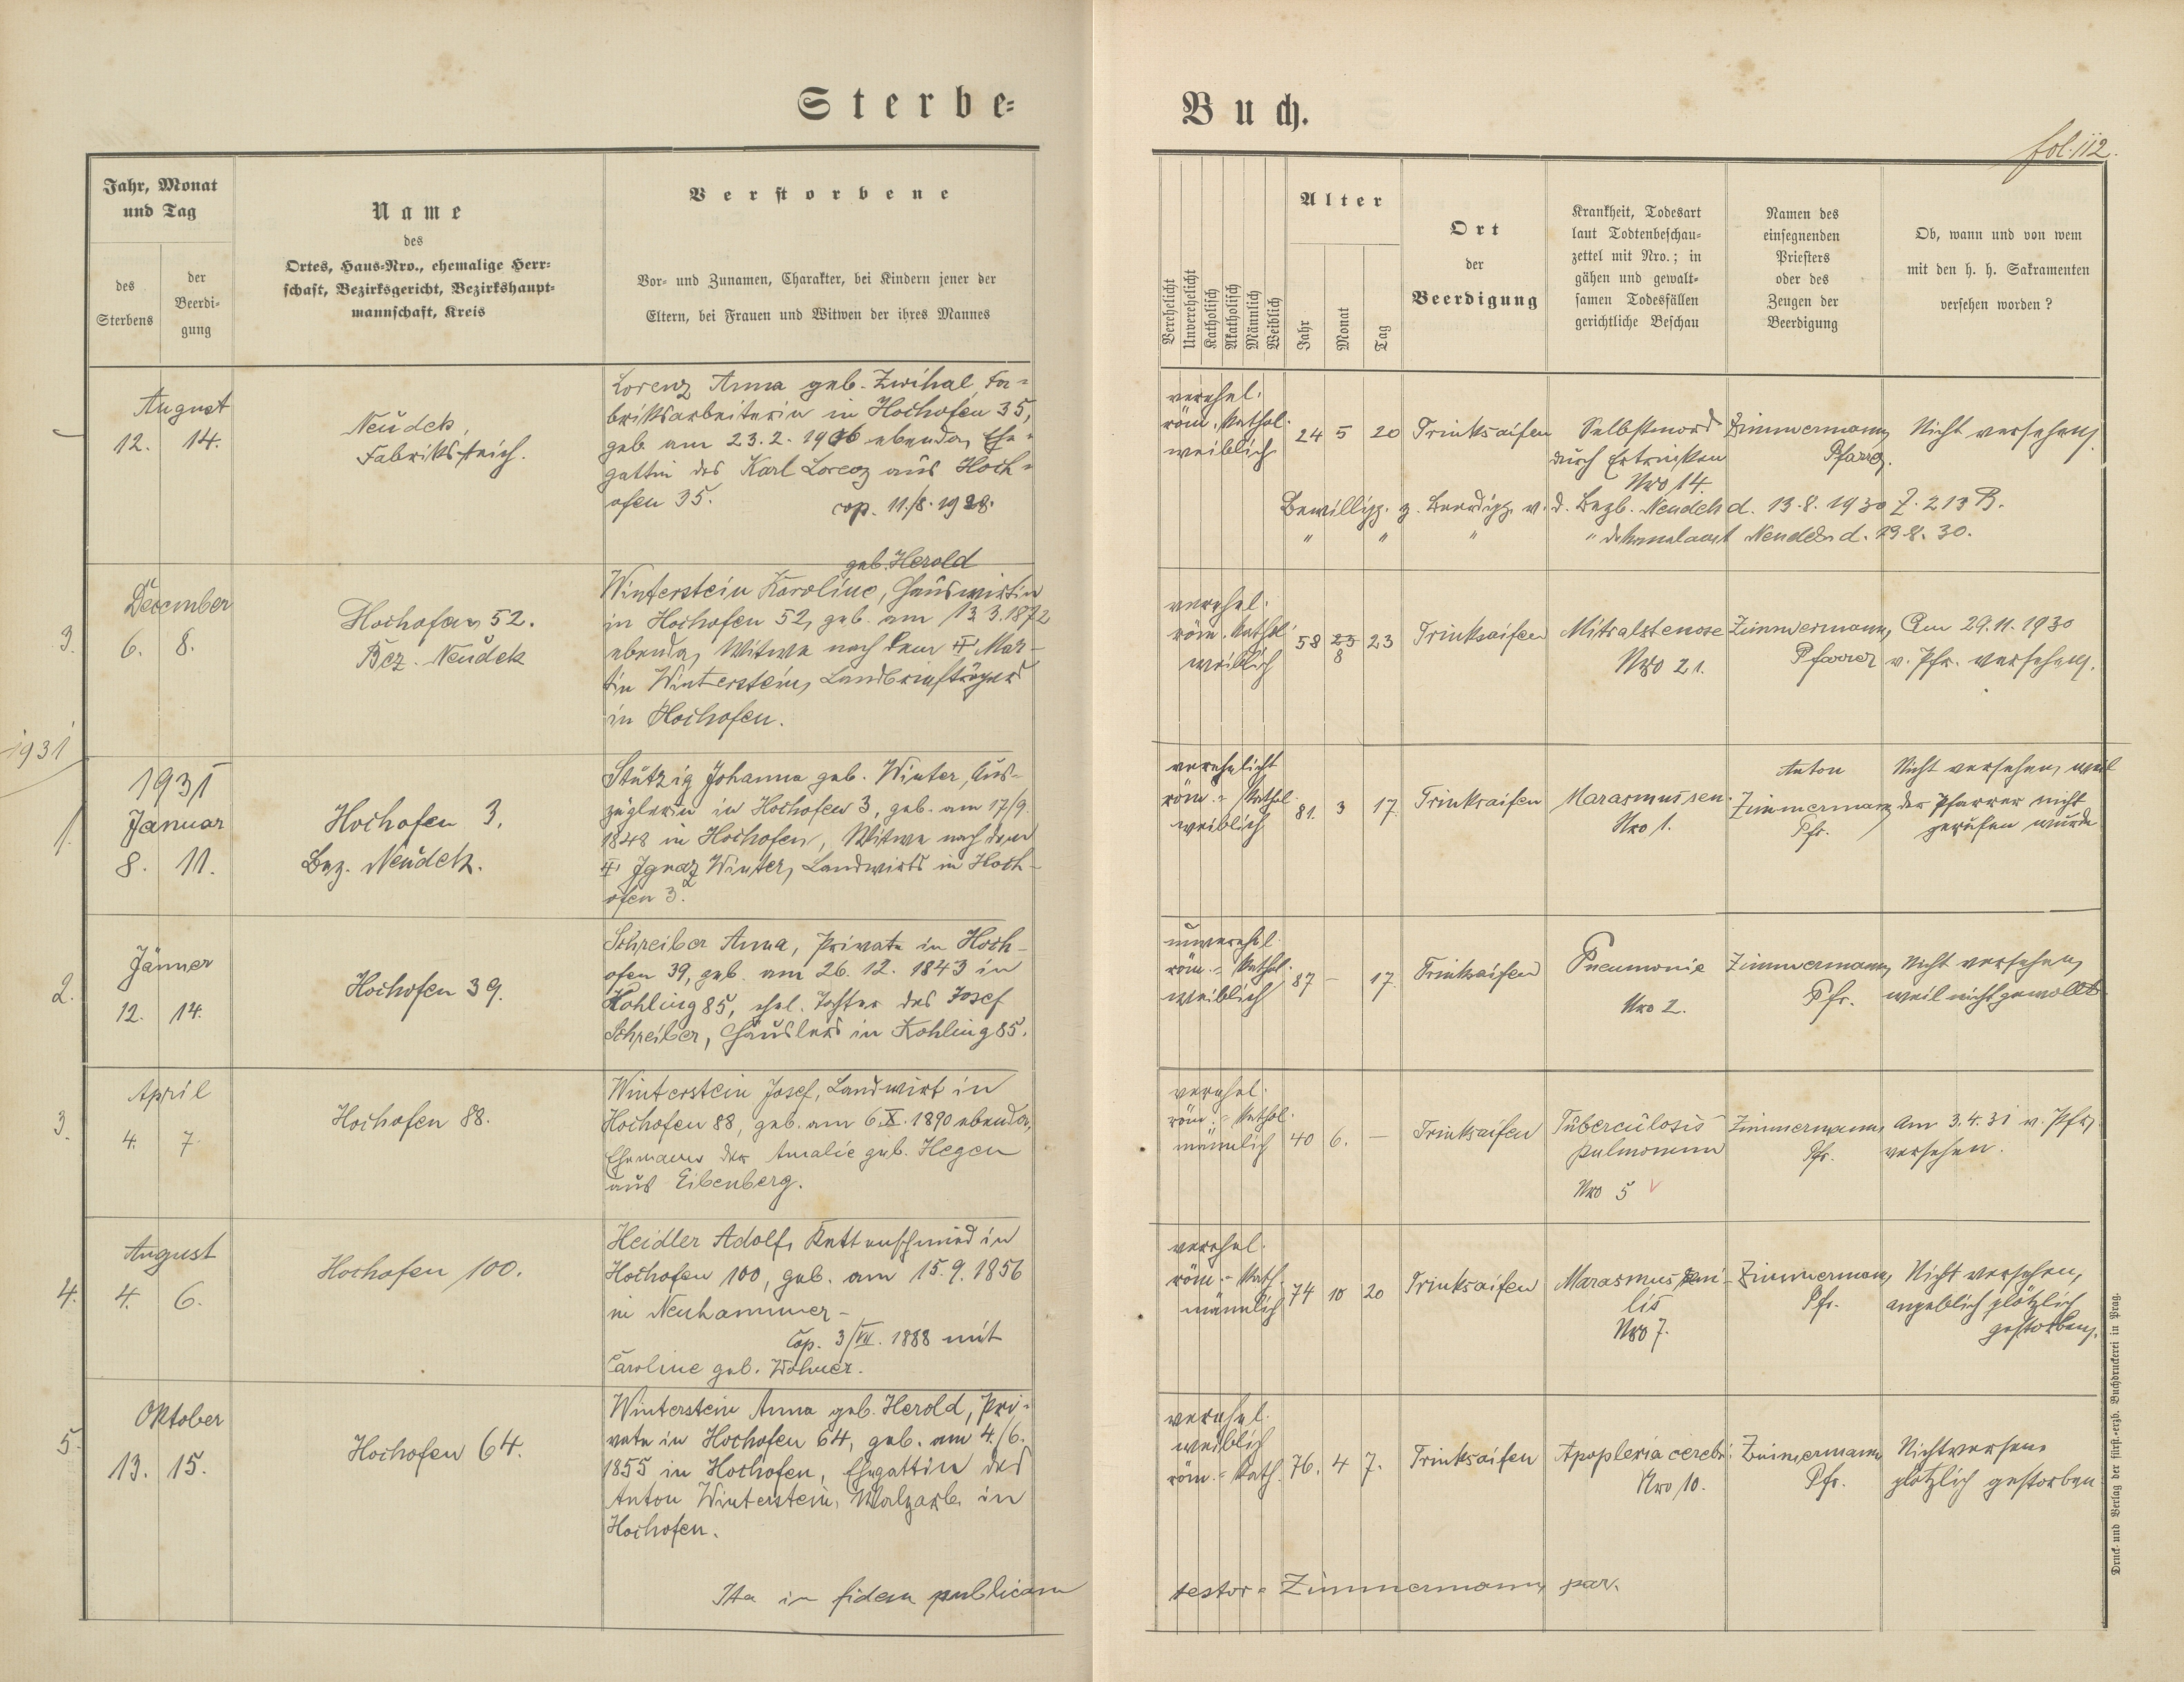 Sterbe=
Buch.
fol. 112.
Jahr, Monat
und Tag
des
Sterbens
der
Beerdi-
gung
Name
des
Ortes, Haus=Nro., ehemalige Herr=
schaft, Bezirksgericht, Bezirkshaupt=
mannschaft, Kreis
Verstorbene
Vor= und Zunamen, Charakter, bei Kindern jener der
Eltern, bei Frauen und Witwen der ihres Mannes
Verehelicht
Unverehelicht
Katholisch
Akatholisch
Männlich
Weiblich
Alter
Jahr
Monat
Tag
Ort
der
Beerdigung
Krankheit, Todesart
laut Todtenbeschau=
zettel mit Nro.; in
gähen und gewalt=
samen Todesfällen
gerichtliche Beschau
Namen des
einsegnenden
Priesters
oder des
Zeugen der
Beerdigung
Ob, wann und von wem
mit den h. h. Sakramenten
versehen worden?
August
12. 14.
Neudek,
Fabriksteich.
Lorenz Anna geb. Zwihal, Fa=
briksarbeiterin in Hochofen 35,
geb. am 23.2.1906 ebenda, Ehe=
gattin des Karl Lorenz aus Hoch=
ofen 35. cop. 11./8. 1928.
verehel.
röm. kathol.
weiblich
24 5 20
Trinksaifen
Selbstmord
durch Ertrinken
Nro 14.
Zimmermann,
Pfarrer.
Nicht versehen,
Bewilligg. z. Beerdigg. v. d. Bezb. Neudek d. 13.8.1930 Z. 213 B.
" " " " Dekanalamt Neudek d. 13.8.30.
3.
December
6. 8.
Hochofen 52.
Bez. Neudek
geb. Herold
Winterstein Karoline, Hauswirtin
in Hochofen 52, geb. am 13.3.1872
ebenda, Witwe nach dem † Mar-
tin Winterstein, Landbriefträgers
in Hochofen.
verehel.
röm. kathol.
weiblich
58 23 23
8
Trinksaifen
Mitralstenose
Nro 21.
Zimmermann,
Pfarrer
Am 29.11.1930
v. Pfr. versehen.
1931
1.
1931
Januar
8. 11.
Hochofen 3,
Bez. Neudek.
Stützig Johanna geb. Winter, Aus-
züglerin in Hochofen 3, geb. am 17/9.
1848 in Hochofen, Witwe nach dem
† Ignaz Winter, Landwirts in Hoch-
ofen 3.
verehelicht
röm.= kathol.
weiblich
81. 3 17.
Trinksaifen
Marasmus sen.
Nro 1.
Anton
Zimmermann
Pfr.
Nicht versehen, weil
der Pfarrer nicht
gerufen wurde
2.
Jänner
12. 14.
Hochofen 39.
Schreiber Anna, Private in Hoch-
ofen 39, geb. am 26.12.1843 in
Kohling 85, ehel. Tochter des Josef
Schreiber, Häuslers in Kohling 85.
unverehel.
röm.= kathol.
weiblich
87 – 17.
Trinksaifen
Pneumonie
Nro 2.
Zimmermann,
Pfr.
Nicht versehen,
weil nicht gewollt
3.
April
4. 7.
Hochofen 88.
Winterstein Josef, Landwirt in
Hochofen 88, geb. am 6.X.1890 ebenda,
Ehemann der Amalie geb. Hegen
aus Eibenberg.
verehel.
röm.= kathol.
männlich
40 6. –
Trinksaifen
Tuberculosis
pulmonum
Nro 5
Zimmermann,
Pfr.
Am 3.4.31 v. Pfr.
versehen.
4.
August
4. 6.
Hochofen 100.
Heidler Adolf, Kettenschmied in
Hochofen 100, geb. am 15.9.1856
in Neuhammer –
Cop. 3/VII. 1888 mit
Caroline geb. Wohner.
verehel.
röm.= kath.
männlich
74 10 20
Trinksaifen
Marasmus seni-
lis
Nro 7.
Zimmermann,
Pfr.
Nicht versehen,
angeblich plötzlich
gestorben.
5.
Oktober
13. 15.
Hochofen 64.
Winterstein Anna geb. Herold, Pri-
vate in Hochofen 64, geb. am 4./6.
1855 in Hochofen, Ehegattin des
Anton Winterstein, Walzarb. in
Hochofen.
verehel.
weiblich
röm.= kath.
76. 4 7.
Trinksaifen
Apoplexia cerebri
Nro 10.
Zimmermann
Pfr.
Nichtversehen
plötzlich gestorben
Ita in fidem publicam
testor= Zimmermann, par.
Druck und Verlag der fürst.-erzb. Buchdruckerei in Prag.